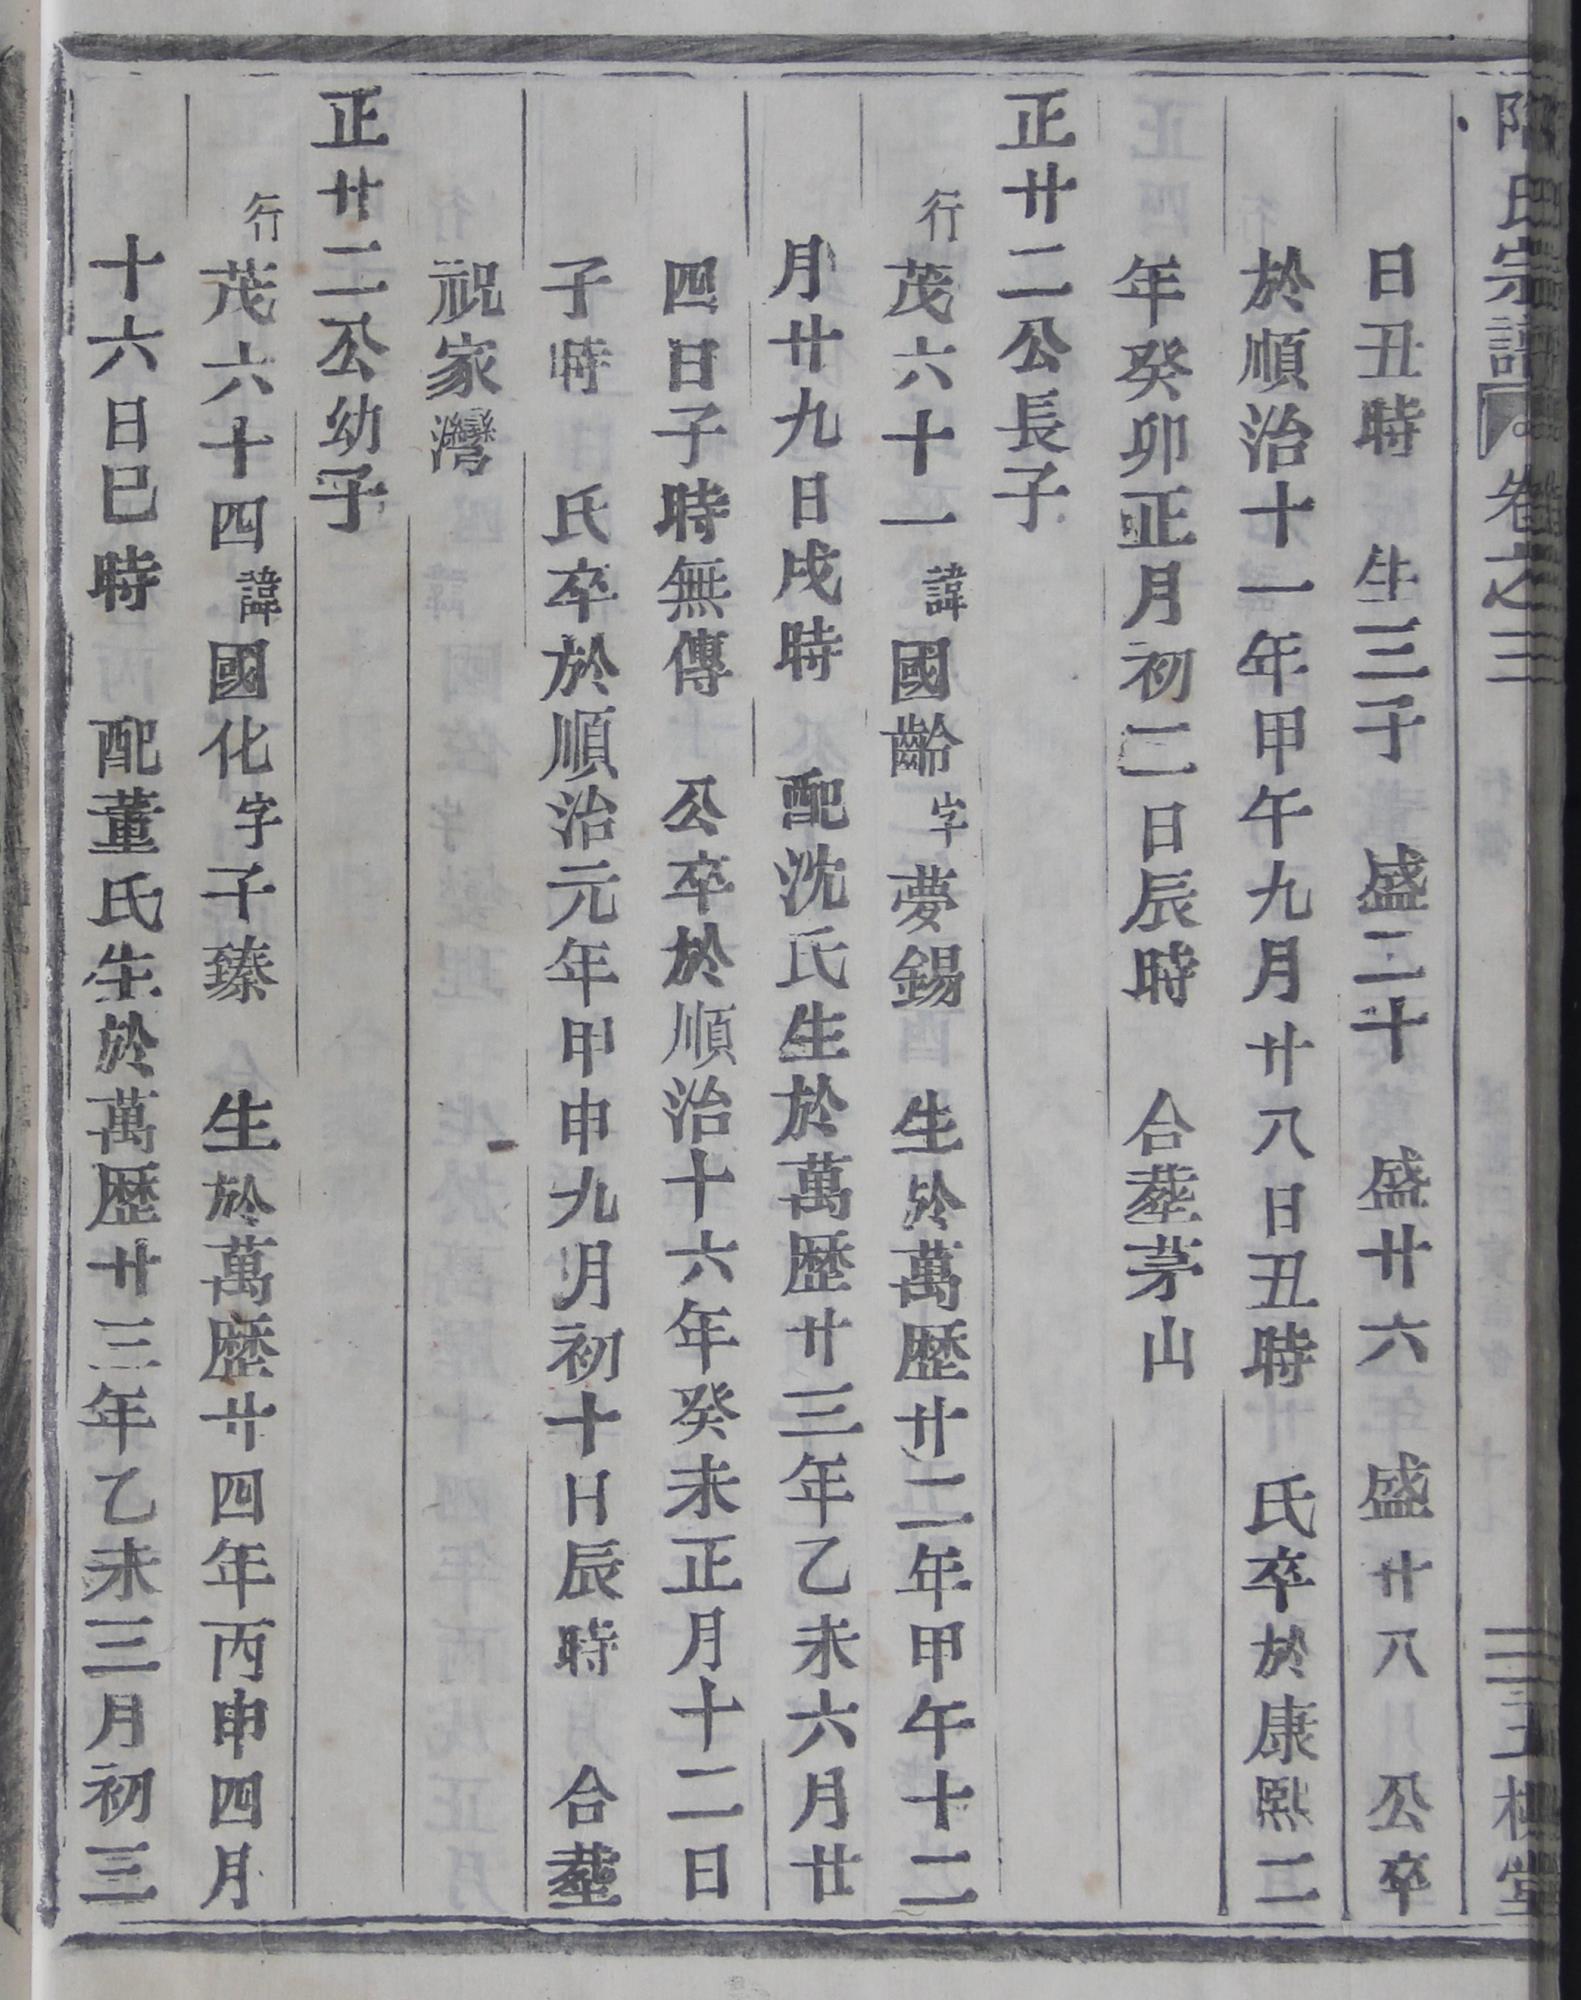 氏宗譜 卷之三 三槐堂
日丑時 生三子 盛二十 盛廿六 盛廿八 公卒
於順治十一年甲午九月廿八日丑時 氏卒於康熙二
年癸卯正月初二日辰時 合塟茅山
正廿二公長子
行茂六十一諱國齡字夢錫 生於萬歷廿二年甲午十二
月廿九日戌時 配沈氏生於萬歷廿三年乙未六月廿
四日子時無傳 公卒於順治十六年癸未正月十二日
子時 氏卒於順治元年甲申九月初十日辰時 合塟
祝家灣
正廿二公幼子
行茂六十四諱國化字子臻 生於萬歷廿四年丙申四月
十六日巳時 配董氏生於萬歷廿三年乙未三月初三